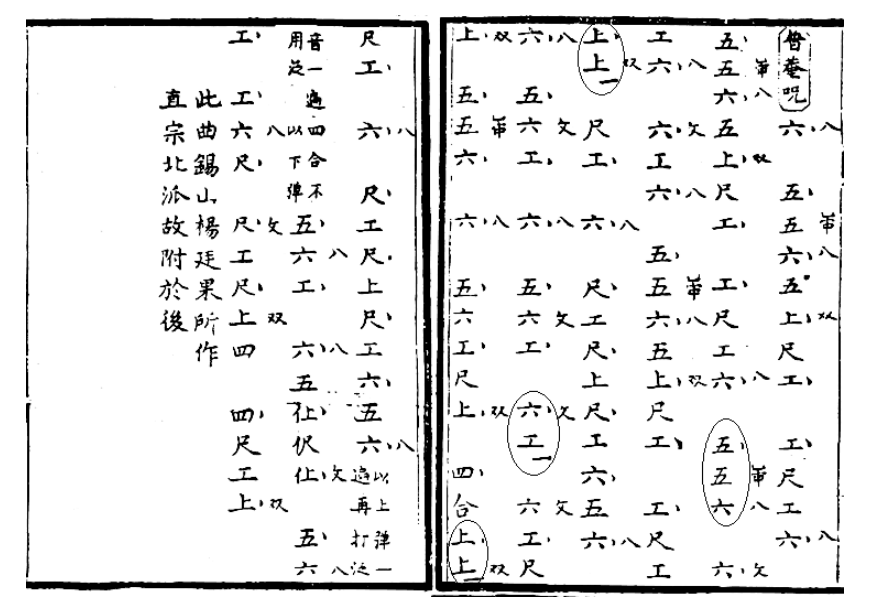 普庵咒 六、八 五、 五苐 六、八 五 上、双 尺 工、 工、 尺 工 六、八
五、 五苐 六、八 五 上、双 尺 工、 工、 尺 工 六、八 五、 五苐 六、八 六、文
工 六、八 六、文 工 六、八 五、 五苐 六、八 五 上、双 尺 工、 工、 尺 工
上、 上一双 尺 工、 六、八 尺、 工 尺、 上 尺、 工 六、 五 六、八 尺
六、八 五、 六文 工、 六、八 五、 六文 工、 六、文 工一 六文 工、 尺
上、双 五、 五苐 六、 六、八 五、 六 工、 尺 上、双 四、 合 上、 上一双
尺 工、 六、八 尺、 工 尺、 上 尺、 工 六、 五 六、八 以上弹一
遍再打泛
音一遍四合不
用泛以下弹
五、 六八 工、 六、八 五 仩、 伬 仩、文 五、 六八
工、 工、 六八 尺、 尺、文 工 尺、 上双 四 四、 尺 工 上、双
此曲錫山楊廷果所作
直宗北派故附於後